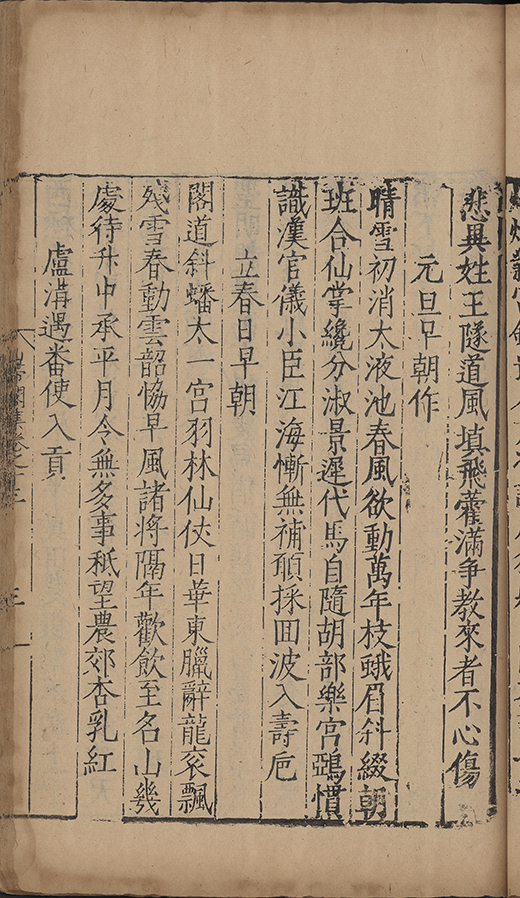 悲異姓王隧道風填飛藿滿爭教來者不心傷
元旦早朝作
晴雪初消太液池春風欲動萬年枝蛾眉斜綴朝
班合仙掌纔分淑景遲代馬自隨胡部樂宮鵶慣
識漢官儀小臣江海慚無補願採回波入壽卮
立春日早朝
閣道斜蟠太一宮羽林仙仗日華東臘辭龍衮飄
殘雪春動雲韶恊早風諸將隔年歡飲至名山幾
處待升中承平月令無多事秪望農郊杏乳紅
盧溝遇番使入貢